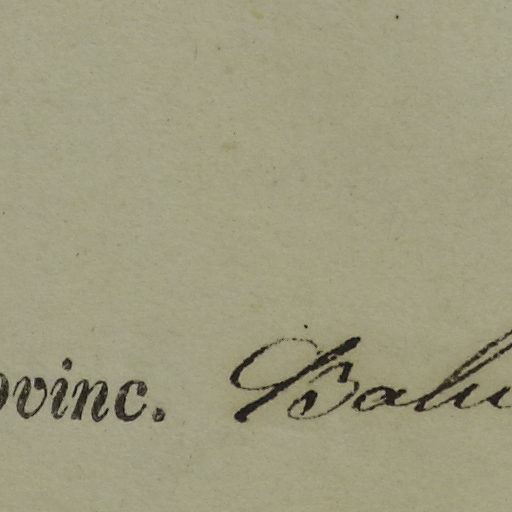 ovinc. Balu